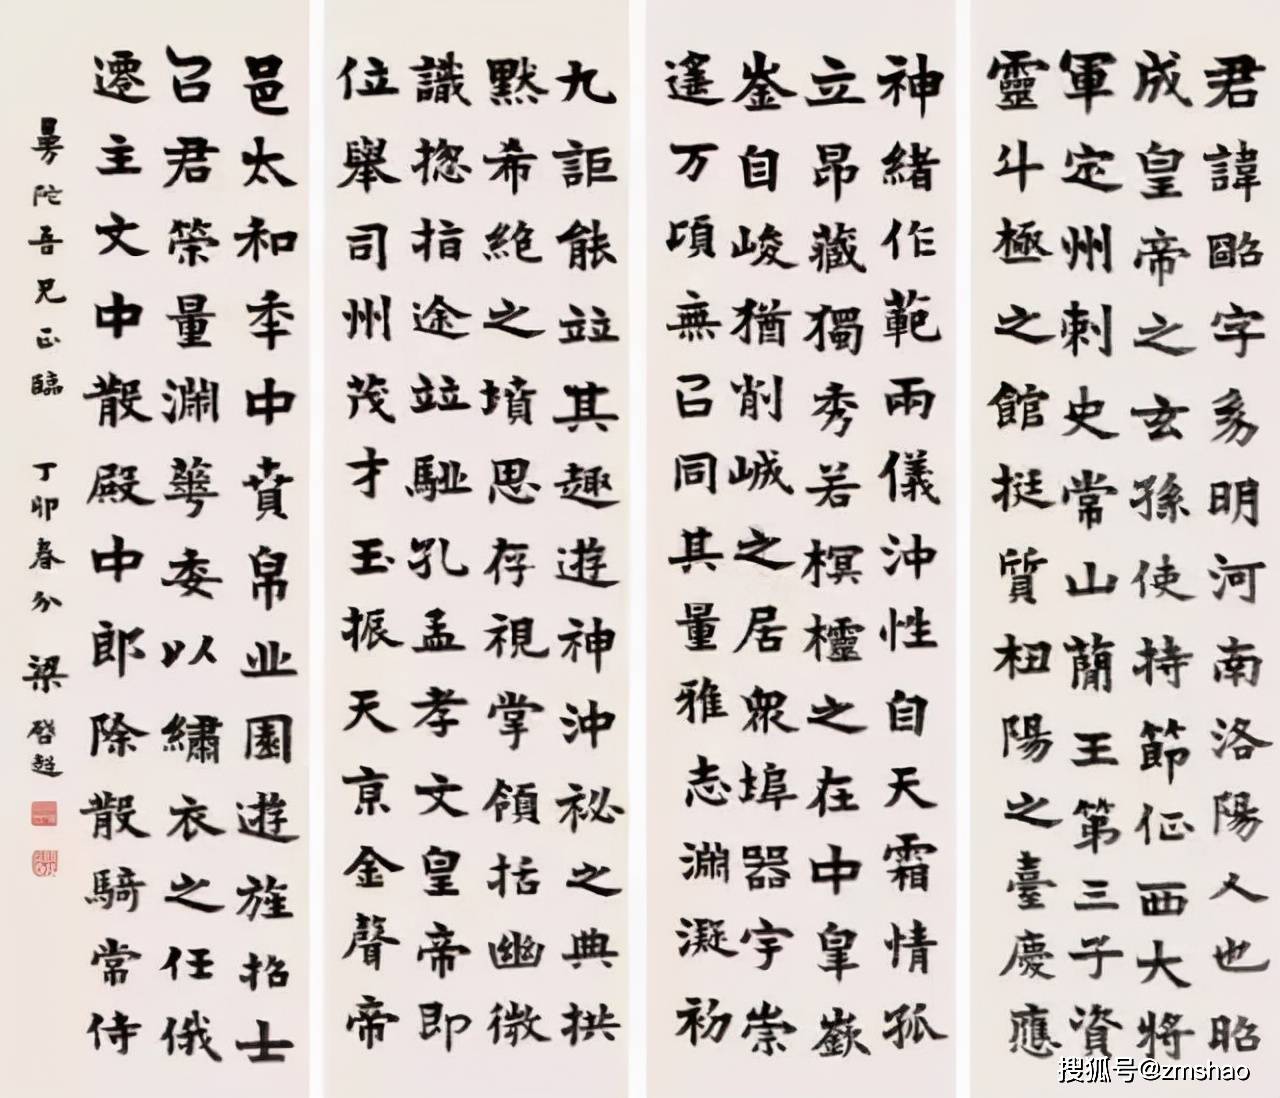 君諱昭字幼明河南洛陽人也昭
成皇帝之玄孫使持節征西大將
軍定州刺史常山蕳王第三子資
靈斗極之館挺質杻陽之臺慶應
神緒作範兩儀沖性自天霜情孤
立昂藏獨秀若榠櫺之在中皐嶔
崟自峻猶削峸之居衆埠器宇崇
遙万頃無㠯同其量雅志淵凝初
九詎能竝其趣遊神沖祕之典拱
默希絶之墳思存視掌領括幽微
識揔指途竝馳孔孟孝文皇帝即
位舉司州茂才玉振天京金聲帝
邑太和季中賁帛丘園遊旌招士
㠯君榮量淵華委以繡衣之任俄
遷主文中散殿中郎除散騎常侍
曼陀吾兄正臨 丁卯春分 梁啓超
搜狐号@zmshao